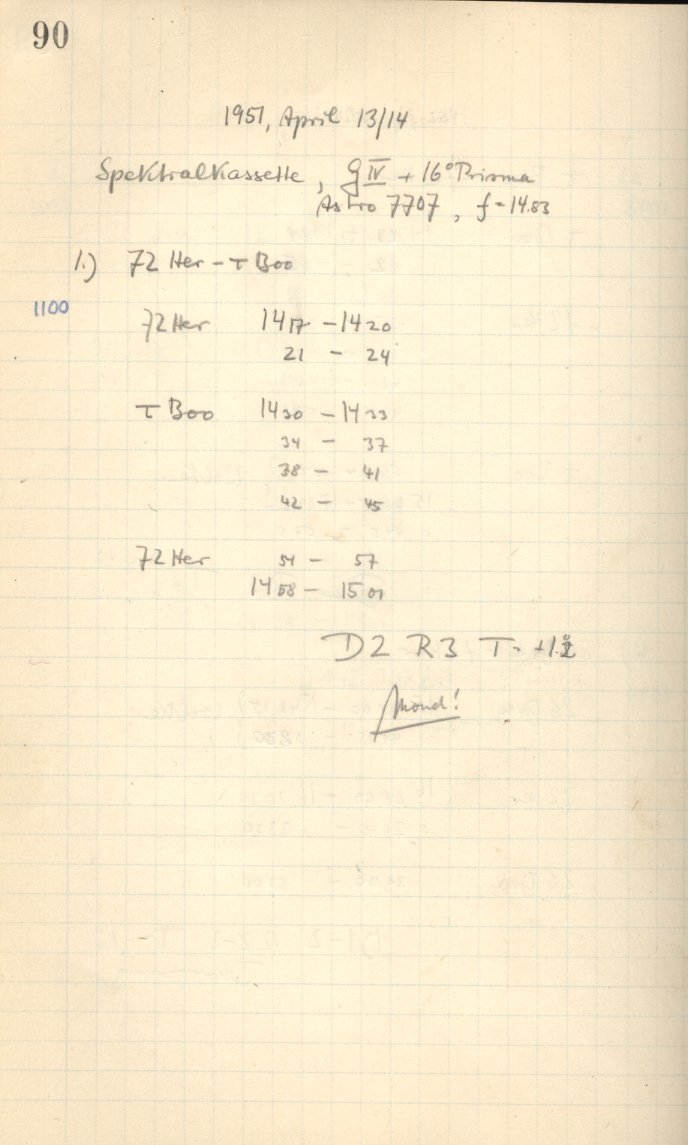 90
1951, April 13/14
Spektralkassette, G IV + 16° Prisma
Astro 7707, f = 14.83
1.) 72 Her - τ Boo
1100
72 Her 14 17 - 14 20
21 - 24
τ Boo 14 30 - 14 33
34 - 37
38 - 41
42 - 45
72 Her 54 - 57
14 58 - 15 01
D2 R3 T = +1.°2
Mond!